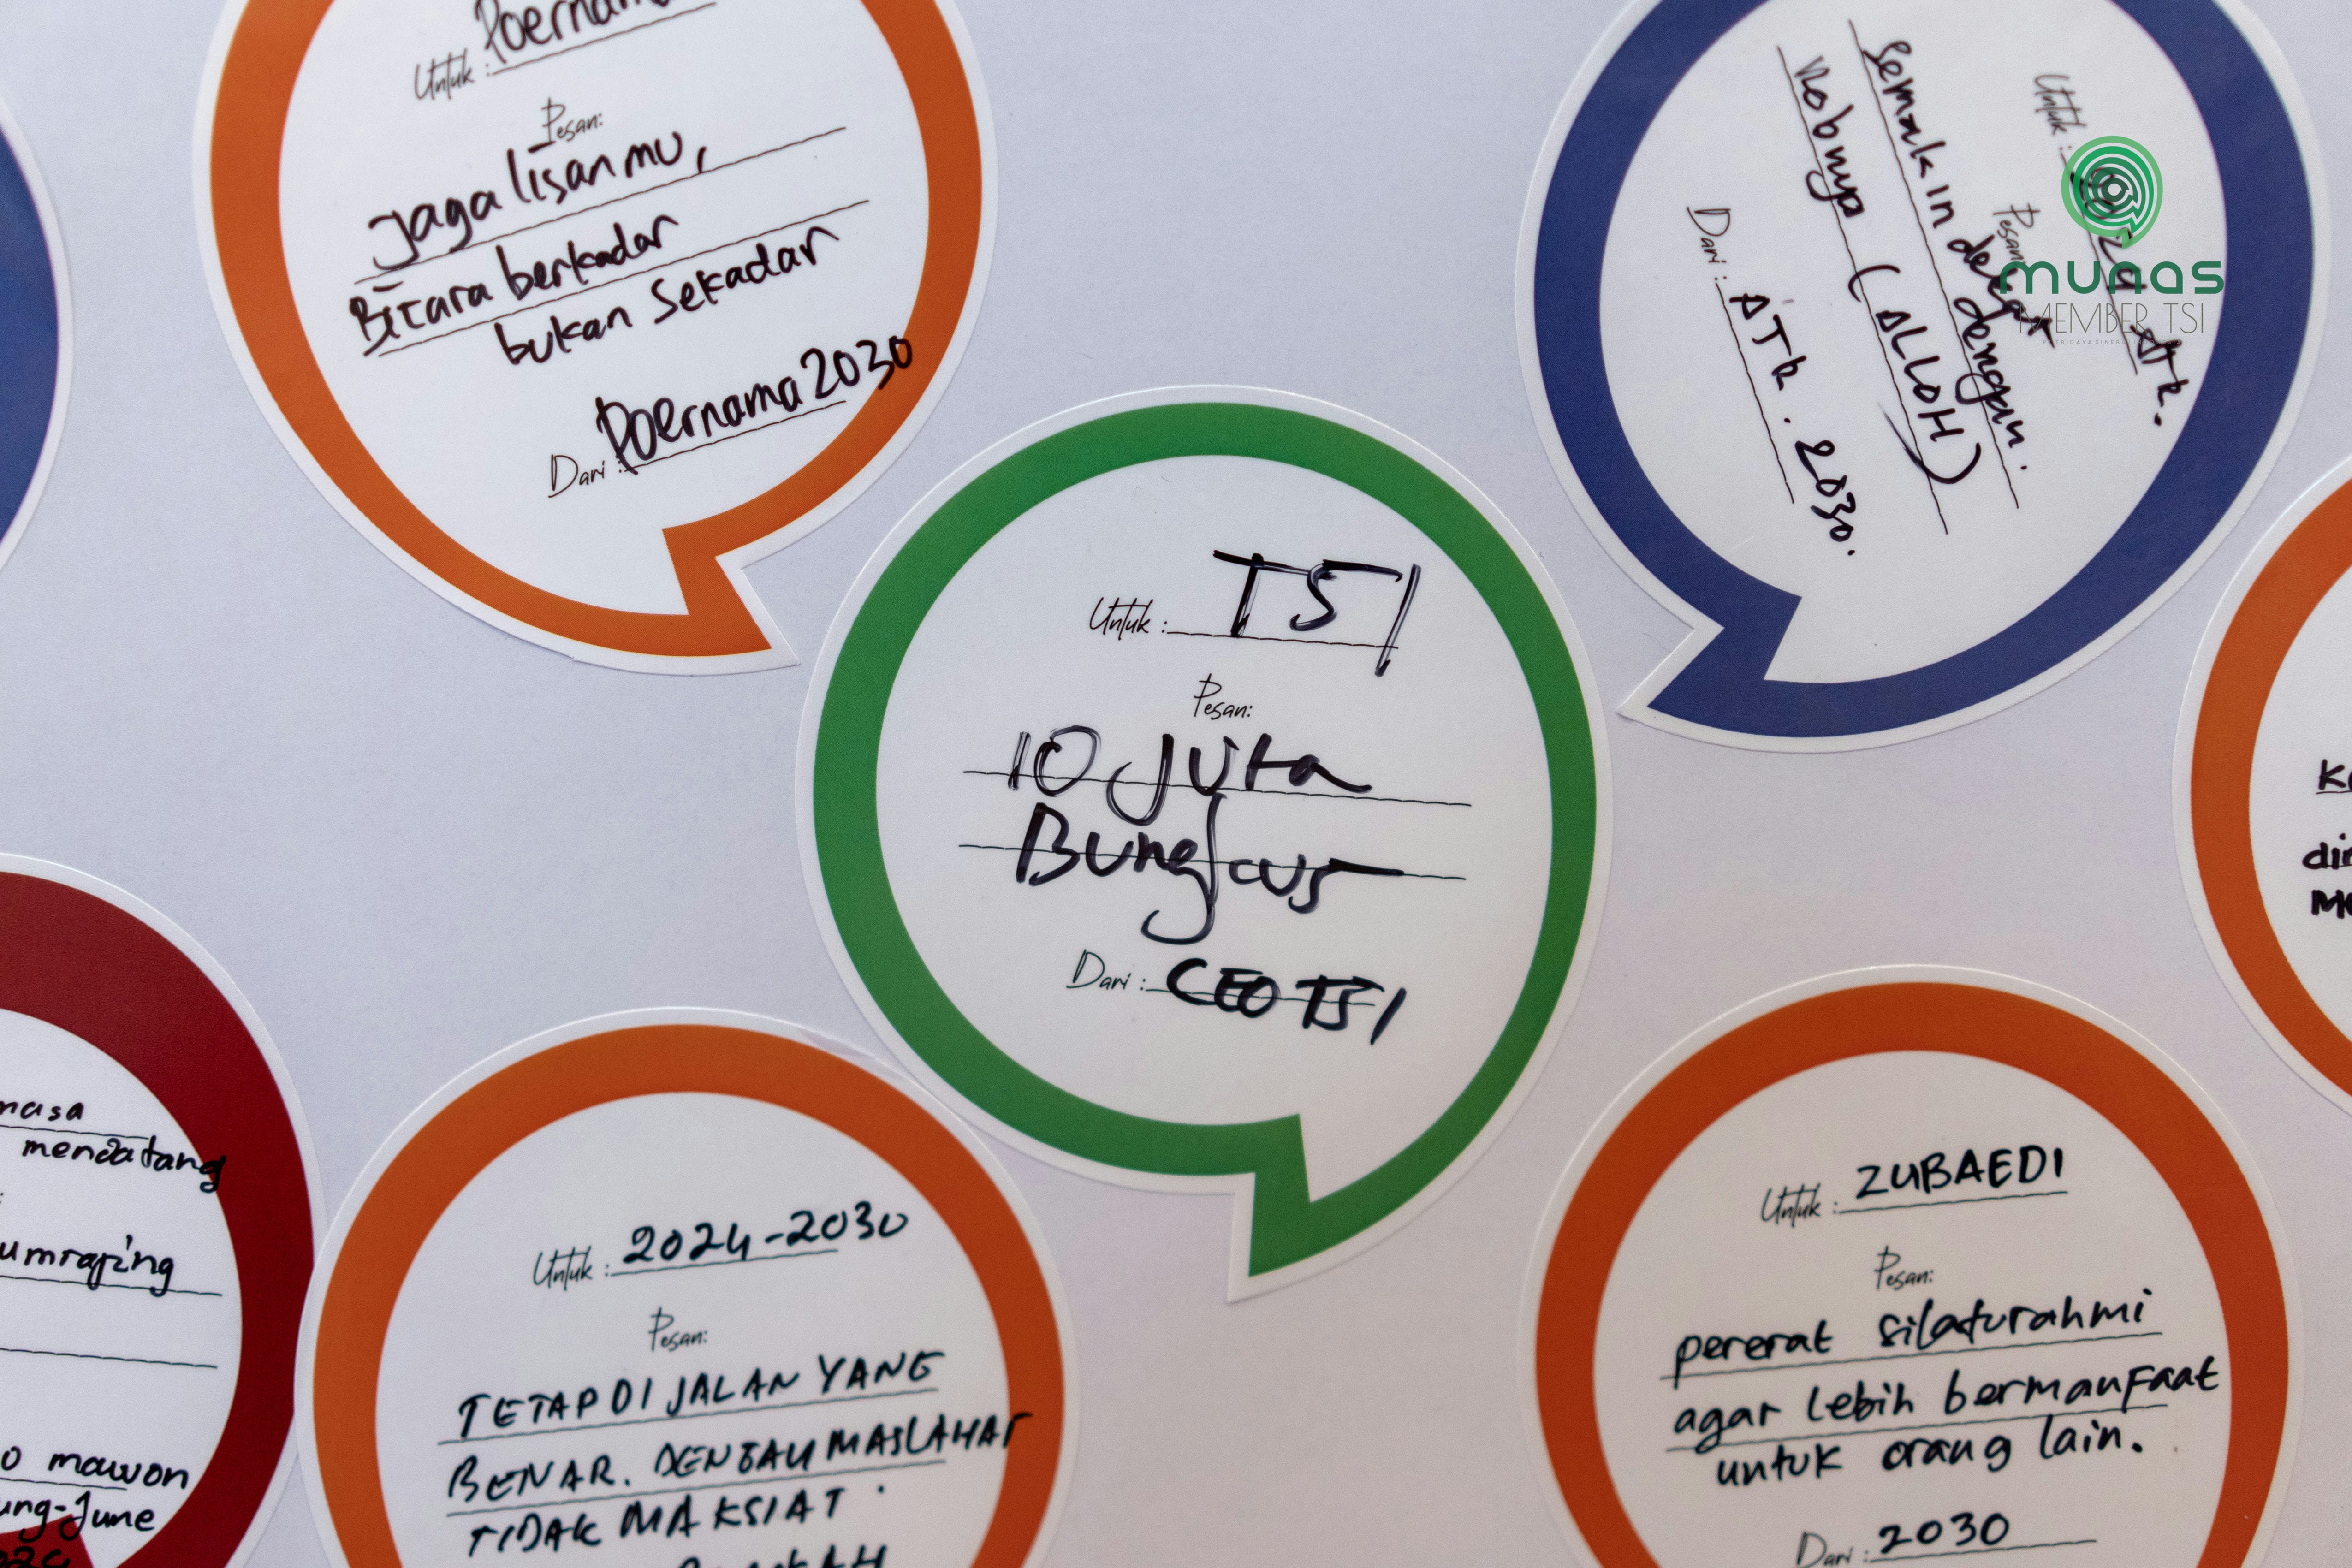 Untuk : Poernama
Pesan:
Jaga lisanmu,
Bicara berkadar
bukan sekadar
Dari : Poernama 2030
Untuk :
Pesan:
Semakin dekat dengan.
Robnya (ALLOH)
Dari : ATK. 2030.
munas
MEMBER TSI
Untuk : TSI
Pesan:
10 Juta
Bungkus
Dari : CEO TSI
masa
mendatang
mawon
ung-June
Untuk : 2024-2030
Pesan:
TETAP DI JALAN YANG
BENAR. DENGAN MASLAHAT
TIDAK MAKSIAT
Untuk : ZUBAEDI
Pesan:
pererat silaturahmi
agar lebih bermanfaat
untuk orang lain.
Dari : 2030